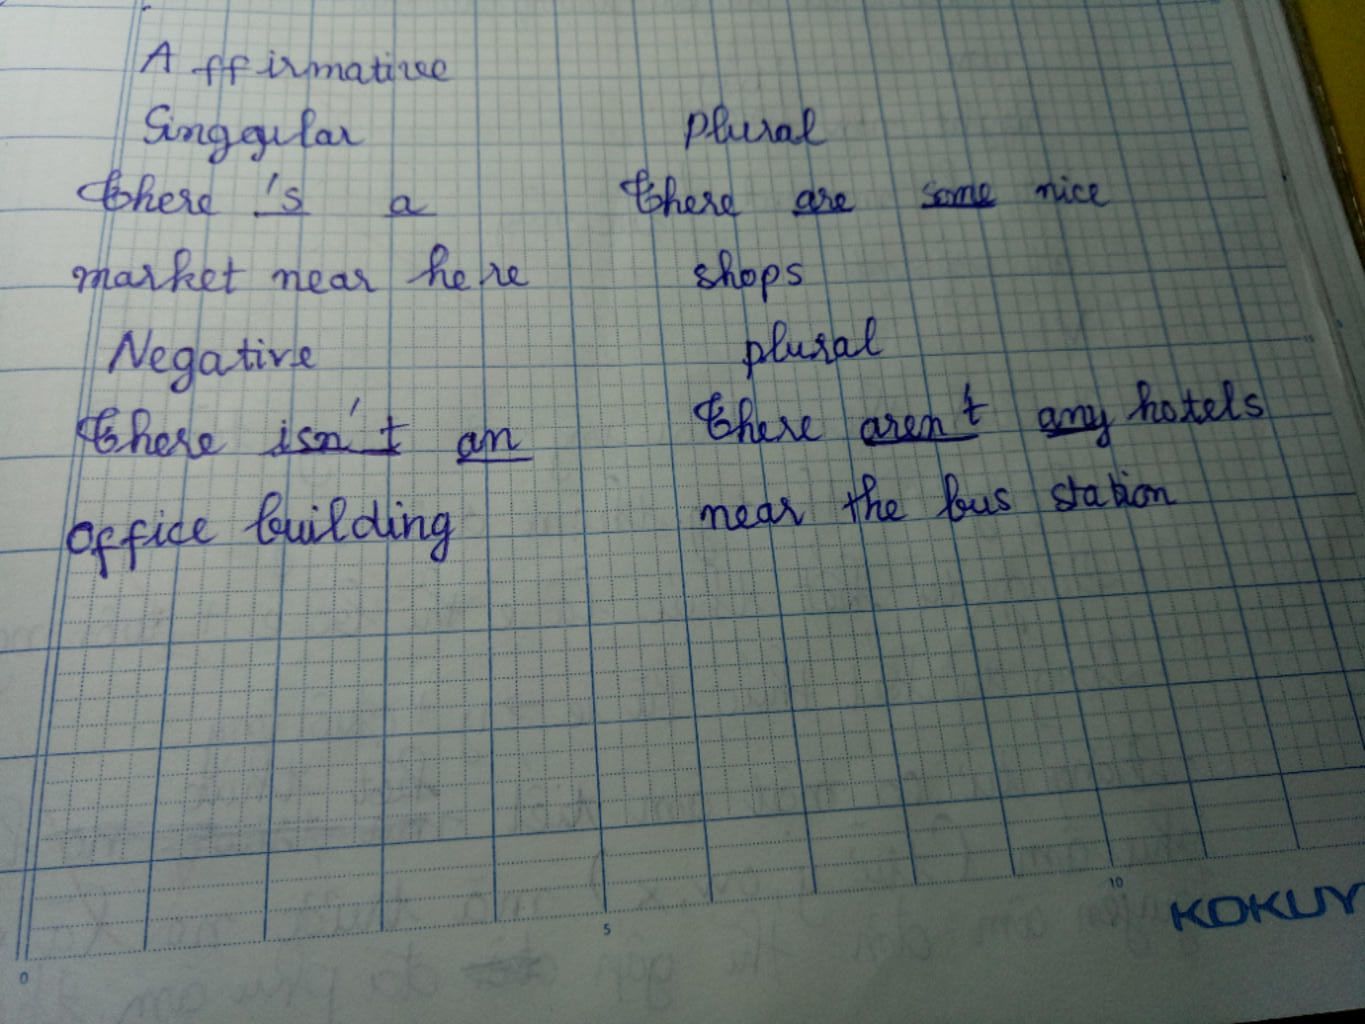 Affirmative
Singgular plural
There 's a There are some nice
market near here shops
Negative plural
There isn't an There aren't any hotels
office building near the bus station
0 5 10 KOKUY